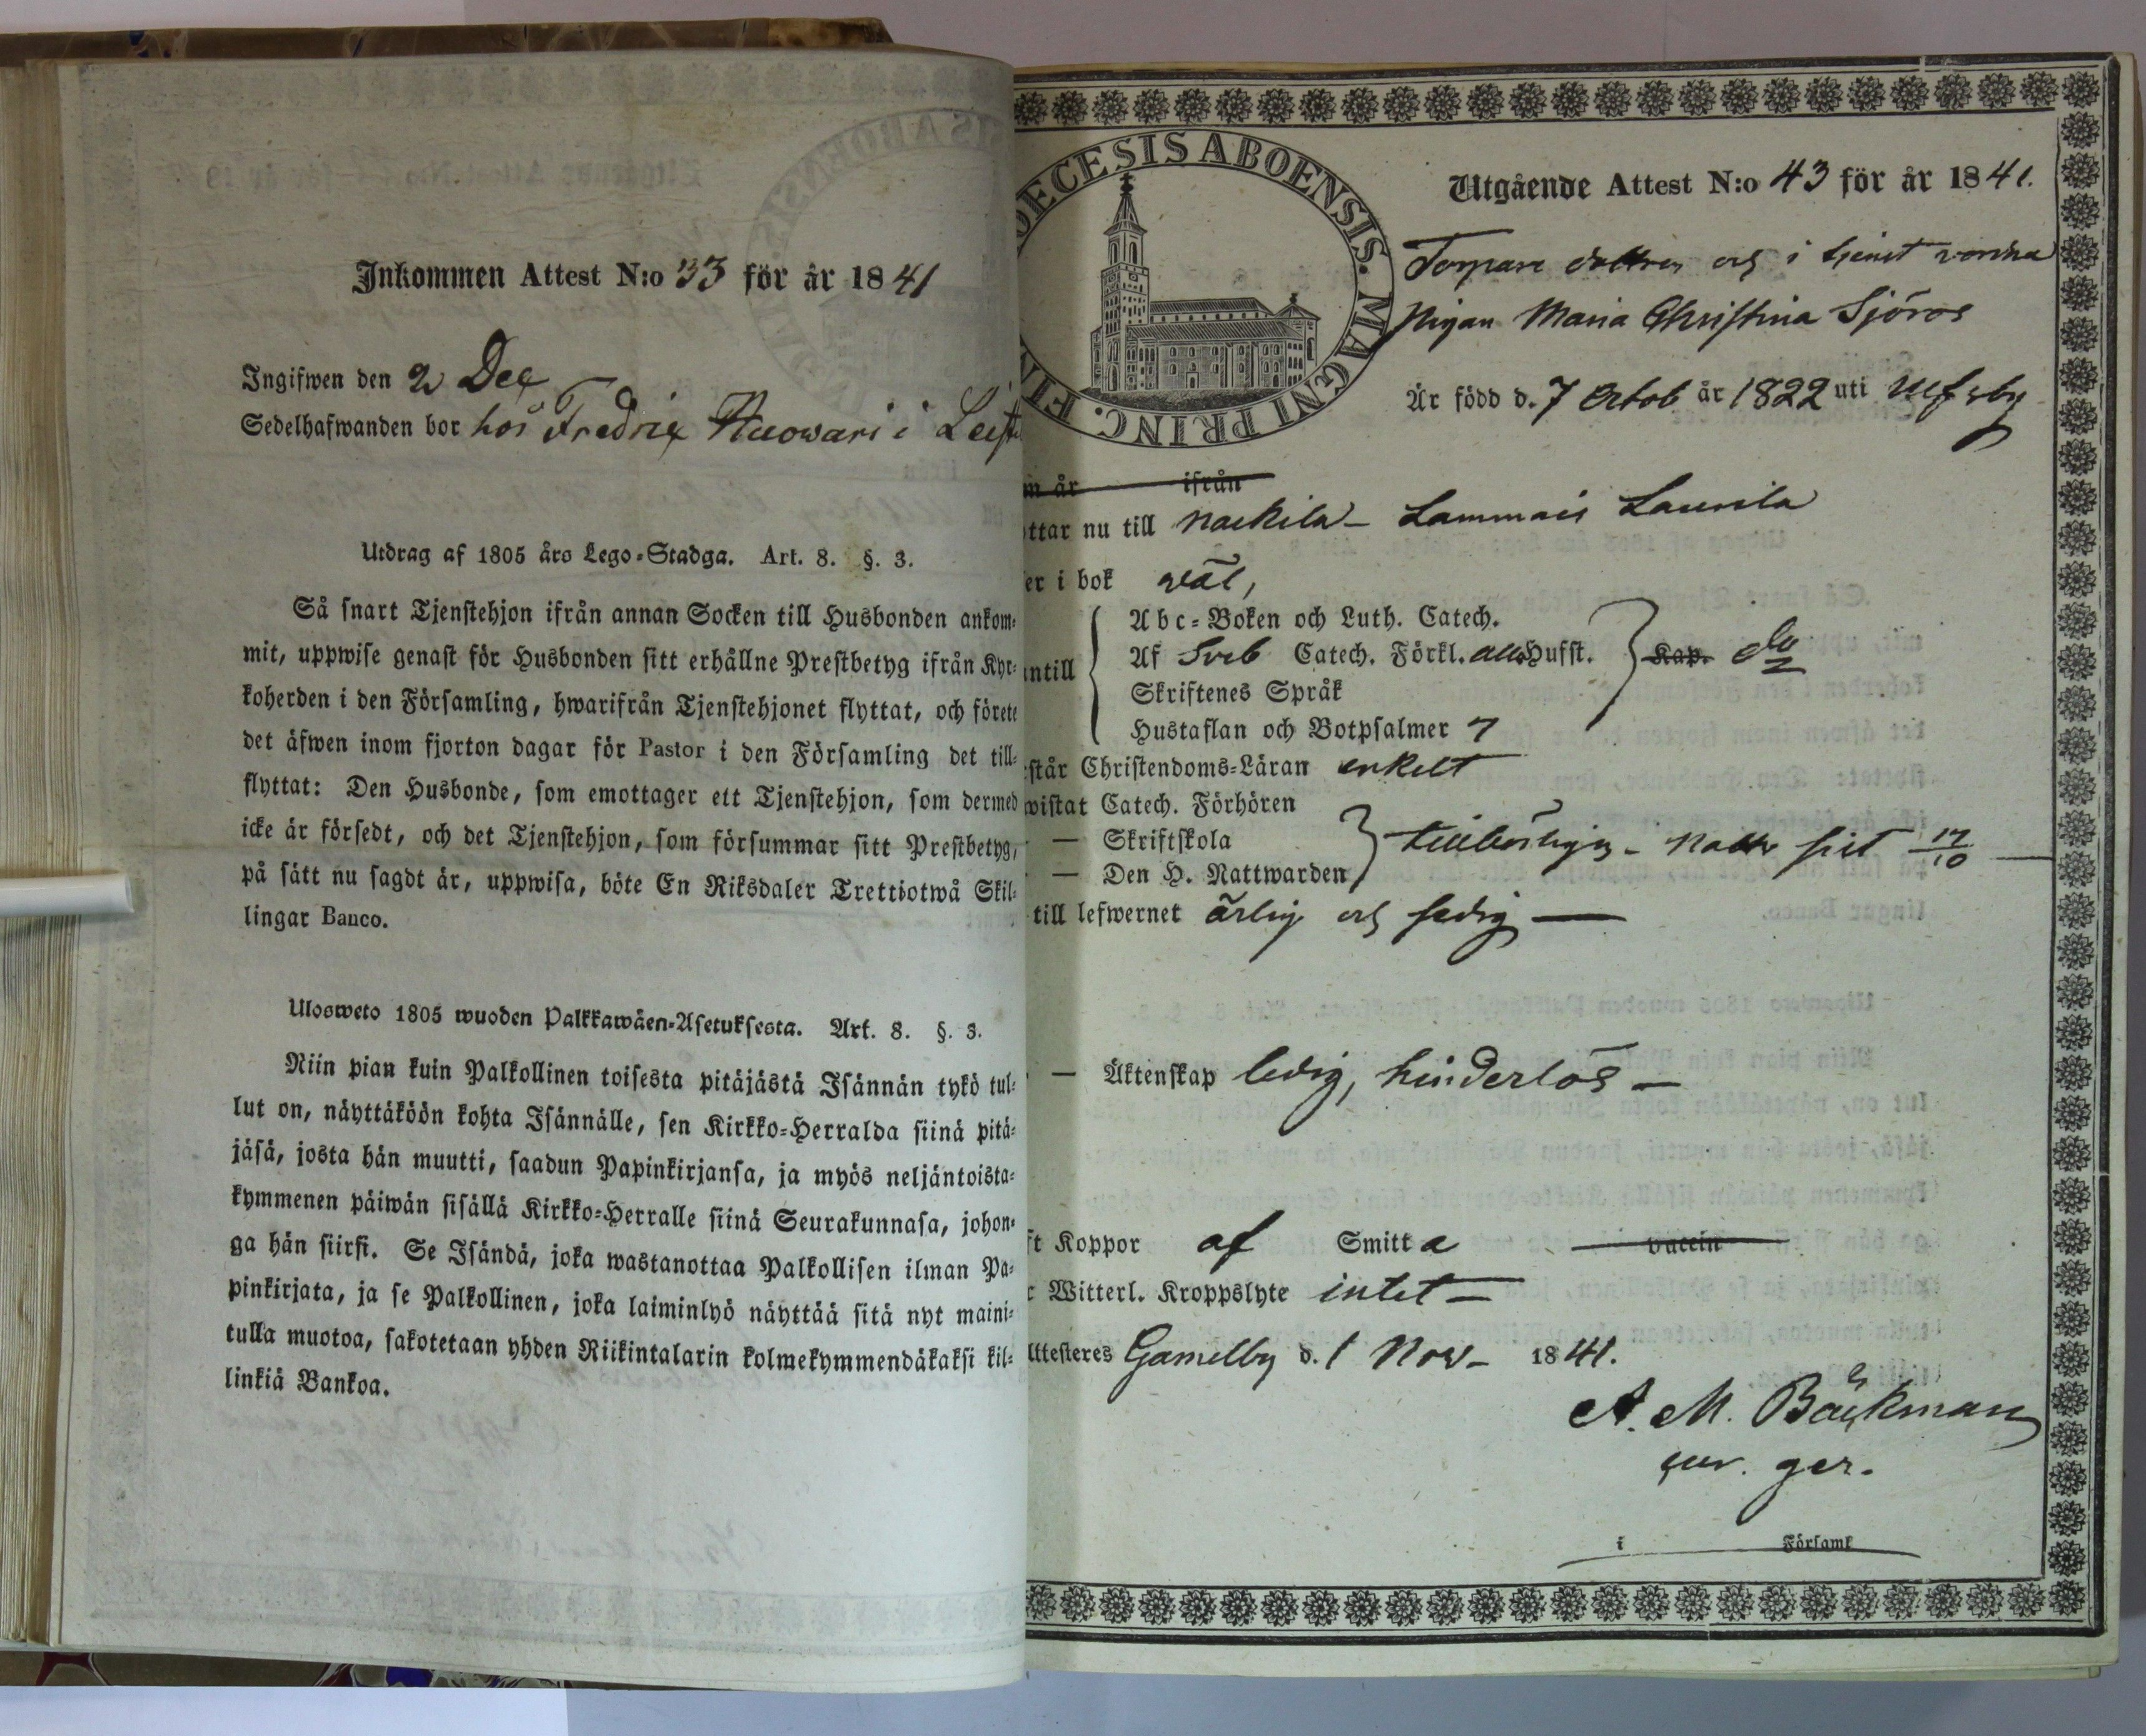 Inkommen Attest N:o 33 för år 1841
Ingifwen den 2 Dec
Sedelhafwanden bor hos Fredric i
Utdrag af 1805 års Lego-Stadga. Art. 8. §. 3.
Så snart Tjenstehjon ifrån annan Socken till Husbonden ankom-
mit, uppwise genast för Husbonden sitt erhållne Prestbetyg ifrån Kyr-
koherden i den Församling, hwarifrån Tjenstehjonet flyttat, och förete
det äfwen inom fjorton dagar för Pastor i den Församling det till-
flyttat: Den Husbonde, som emottager ett Tjenstehjon, som dermed
icke är försedt, och det Tjenstehjon, som försummar sitt Prestbetyg,
på sätt nu sagdt är, uppwisa, böte En Riksdaler Trettiotwå Skil-
lingar Banco.
Ulosweto 1805 wuoden Palkkawäen-Asetuksesta. Art. 8. §. 3.
Niin pian kuin Palkollinen toisesta pitäjästä Isännän tykö tul-
lut on, näyttäköön kohta Isännälle, sen Kirkko-Herralda siinä pitä-
jäsä, josta hän muutti, saadun Papinkirjansa, ja myös neljäntoista-
kymmenen päiwän sisällä Kirkko-Herralle siinä Seurakunnasa, johon-
ga hän siirsi. Se Isändä, joka wastanottaa Palkollisen ilman Pa-
pinkirjata, ja se Palkollinen, joka laiminlyö näyttää sitä nyt maini-
tulla muotoa, sakotetaan yhden Riikintalarin kolmekymmendäkaksi kil-
linkiä Bankoa.
OECESIS ABOENSIS. MAGNI PRINC. FIN
Utgående Attest N:o 43 för år 1841.
Torpare dottren och i tjenst warda
Pigan Maria Christina Sjöros
Är född d. 7 Octob år 1822 uti Ulfsby
m år ifrån
ttar nu till Nackila - Lammais Laurila
er i bok wäl,
Abc-Boken och Luth. Catech.
Af Sveb Catech. Förkl. alla Hufst. Kap. do
antill
Skriftenes Språk
Hustaflan och Botpsalmer 7
står Christendoms-Läran enkelt
wistat Catech. Förhören
— Skriftskola
tillbörligen - Nattv sist 17/10
— Den H. Nattwarden
till lefwernet ärlig och sedig —
— Äktenskap ledig, hinderlös —
ft Koppor af Smitta vaccin
r Witterl. Kroppslyte intet —
Attesteres Gamelby d. 1 Nov - 1841.
A. M. Bäckman
cur. ger.
i Församl